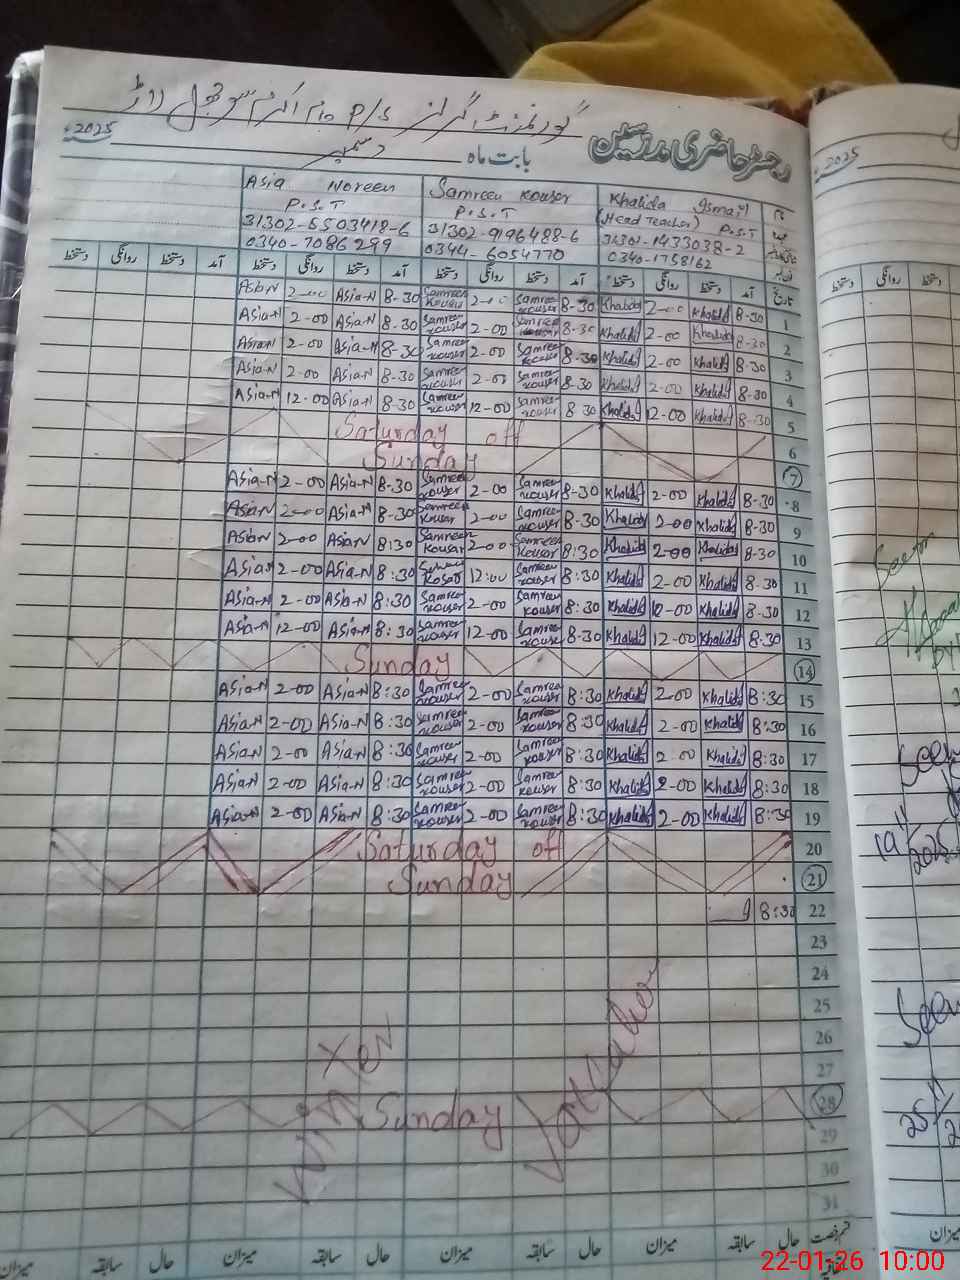 گورنمنٹ گرلز P/S
رجسٹر حاضری مدرسین بابت ماہ دسمبر 2025ء
Khalida Ismail (Head Teacher) P.S.T 0340-1758162
Samreen Kouser P.S.T 31302-9196488-6 0344-6054770
Asia Noreen P.S.T 31302-5503418-6 0340-7086299
تاریخ آمد دستخط روانگی دستخط آمد دستخط روانگی دستخط آمد دستخط روانگی دستخط آمد روانگی دستخط
1 8-30 Khalida 2-00 Khalida 8-30 Samreen Kouser 2-00 Samreen Kouser 8-30 Asia-N 2-00 Asia-N
2 8-30 Khalida 2-00 Khalida 8-30 Samreen Kouser 2-00 Samreen Kouser 8-30 Asia-N 2-00 Asia-N
3 8-30 Khalida 2-00 Khalida 8-30 Samreen Kouser 2-00 Samreen Kouser 8-30 Asia-N 2-00 Asia-N
4 8-30 Khalida 2-00 Khalida 8-30 Samreen Kouser 2-00 Samreen Kouser 8-30 Asia-N 2-00 Asia-N
5 8-30 Khalida 12-00 Khalida 8-30 Samreen Kouser 12-00 Samreen Kouser 8-30 Asia-N 12-00 Asia-N
6 Saturday off
7 Sunday
8 8-30 Khalida 2-00 Khalida 8-30 Samreen Kouser 2-00 Samreen Kouser 8-30 Asia-N 2-00 Asia-N
9 8-30 Khalida 2-00 Khalida 8-30 Samreen Kouser 2-00 Samreen Kouser 8-30 Asia-N 2-00 Asia-N
10 8-30 Khalida 2-00 Khalida 8:30 Samreen Kousar 2-00 Samreen Kousar 8:30 Asia-N 2-00 Asia-N
11 8-30 Khalida 2-00 Khalida 8:30 Samreen Kouser 12:00 8:30 Asia-N 2-00 Asia-N
12 8-30 Khalida 12-00 Khalida 8:30 Samreen Kouser 2-00 Samreen Kouser 8:30 Asia-N 2-00 Asia-N
13 8-30 Khalida 12-00 Khalida 8-30 Samreen Kouser 12-00 Samreen Kouser 8:30 Asia-N 12-00 Asia-N
14 Sunday
15 8:30 Khalida 2-00 Khalida 8:30 Samreen Kouser 2-00 Samreen Kouser 8:30 Asia-N 2-00 Asia-N
16 8:30 Khalida 2-00 Khalida 8:30 Samreen Kouser 2-00 Samreen Kouser 8:30 Asia-N 2-00 Asia-N
17 8:30 Khalida 2-00 Khalida 8:30 Samreen Kouser 2-00 Samreen Kouser 8:30 Asia-N 2-00 Asia-N
18 8:30 Khalida 2-00 Khalida 8:30 Samreen Kouser 2-00 Samreen Kouser 8:30 Asia-N 2-00 Asia-N
19 8:30 Khalida 2-00 Khalida 8:30 Samreen Kouser 2-00 Samreen Kouser 8:30 Asia-N 2-00 Asia-N
20 Saturday off
21 Sunday
22 8:30
23
24
25
26
27
28 Sunday
29
30
31
Winter
حال سابقہ میزان حال سابقہ میزان حال سابقہ میزان حال سابقہ میزان
2025ء
روانگی دستخط
Seen
19/11/2025
Seen
25/11
میزان
22-01-26 10:00